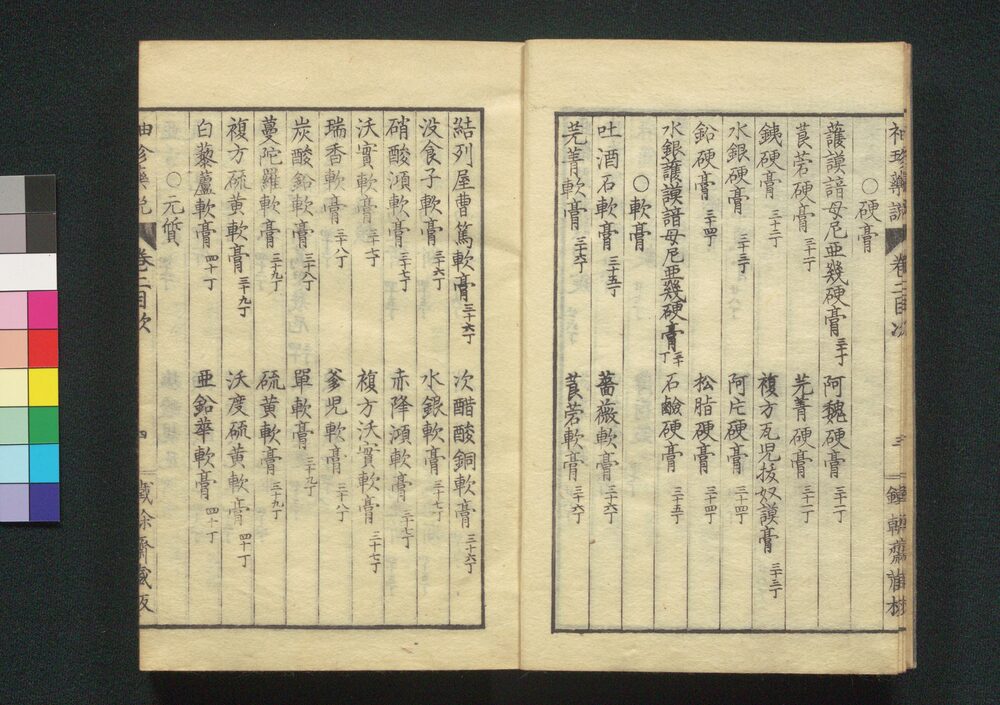 袖珍藥説 卷二目次 三
○硬膏
護謨諳母尼亜幾硬膏 三十丁 阿魏硬膏 三十一丁
莨菪硬膏 三十二丁 芫菁硬膏 三十二丁
銕硬膏 三十三丁 複方瓦児抜奴謨膏 三十三丁
水銀硬膏 三十三丁 阿片硬膏 三十四丁
鉛硬膏 三十四丁 松脂硬膏 三十四丁
水銀護謨諳母尼亜幾硬膏 三十丁 石鹸硬膏 三十五丁
吐酒石軟膏 三十五丁 薔薇軟膏 三十六丁
○軟膏
芫菁軟膏 三十六丁 莨菪軟膏 三十六丁
結列屋曹篤軟膏 三十六丁 次醋酸銅軟膏 三十六丁
没食子軟膏 三十六丁 水銀軟膏 三十七丁
硝酸澒軟膏 三十七丁 赤降澒軟膏 三十七丁
沃實軟膏 三十七丁 複方沃實軟膏 三十七丁
瑞香軟膏 三十八丁 爹児軟膏 三十八丁
炭酸鉛軟膏 三十八丁 單軟膏 三十九丁
蔓陀羅軟膏 三十九丁 硫黄軟膏 三十九丁
複方硫黄軟膏 三十九丁 沃度硫黄軟膏 四十丁
白藜蘆軟膏 四十丁 亜鉛華軟膏 四十丁
○元質
袖珍藥説 卷二目次 四